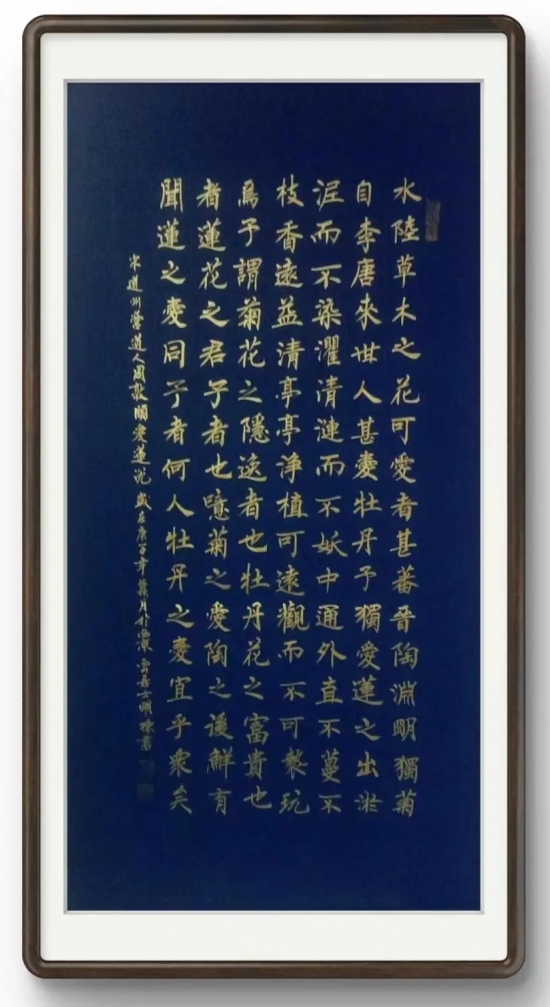 水陸草木之花可愛者甚蕃晉陶淵明獨菊
自李唐來世人甚愛牡丹予獨愛蓮之出淤
泥而不染濯清漣而不妖中通外直不蔓不
枝香遠益清亭亭淨植可遠觀而不可褻玩
焉予謂菊花之隱逸者也牡丹花之富貴也
者蓮花之君子者也噫菊之愛陶之後鮮有
聞蓮之愛同予者何人牡丹之愛宜乎衆矣
宋道州營道人周敦頤愛蓮說歲在庚子年月於雲居士明書